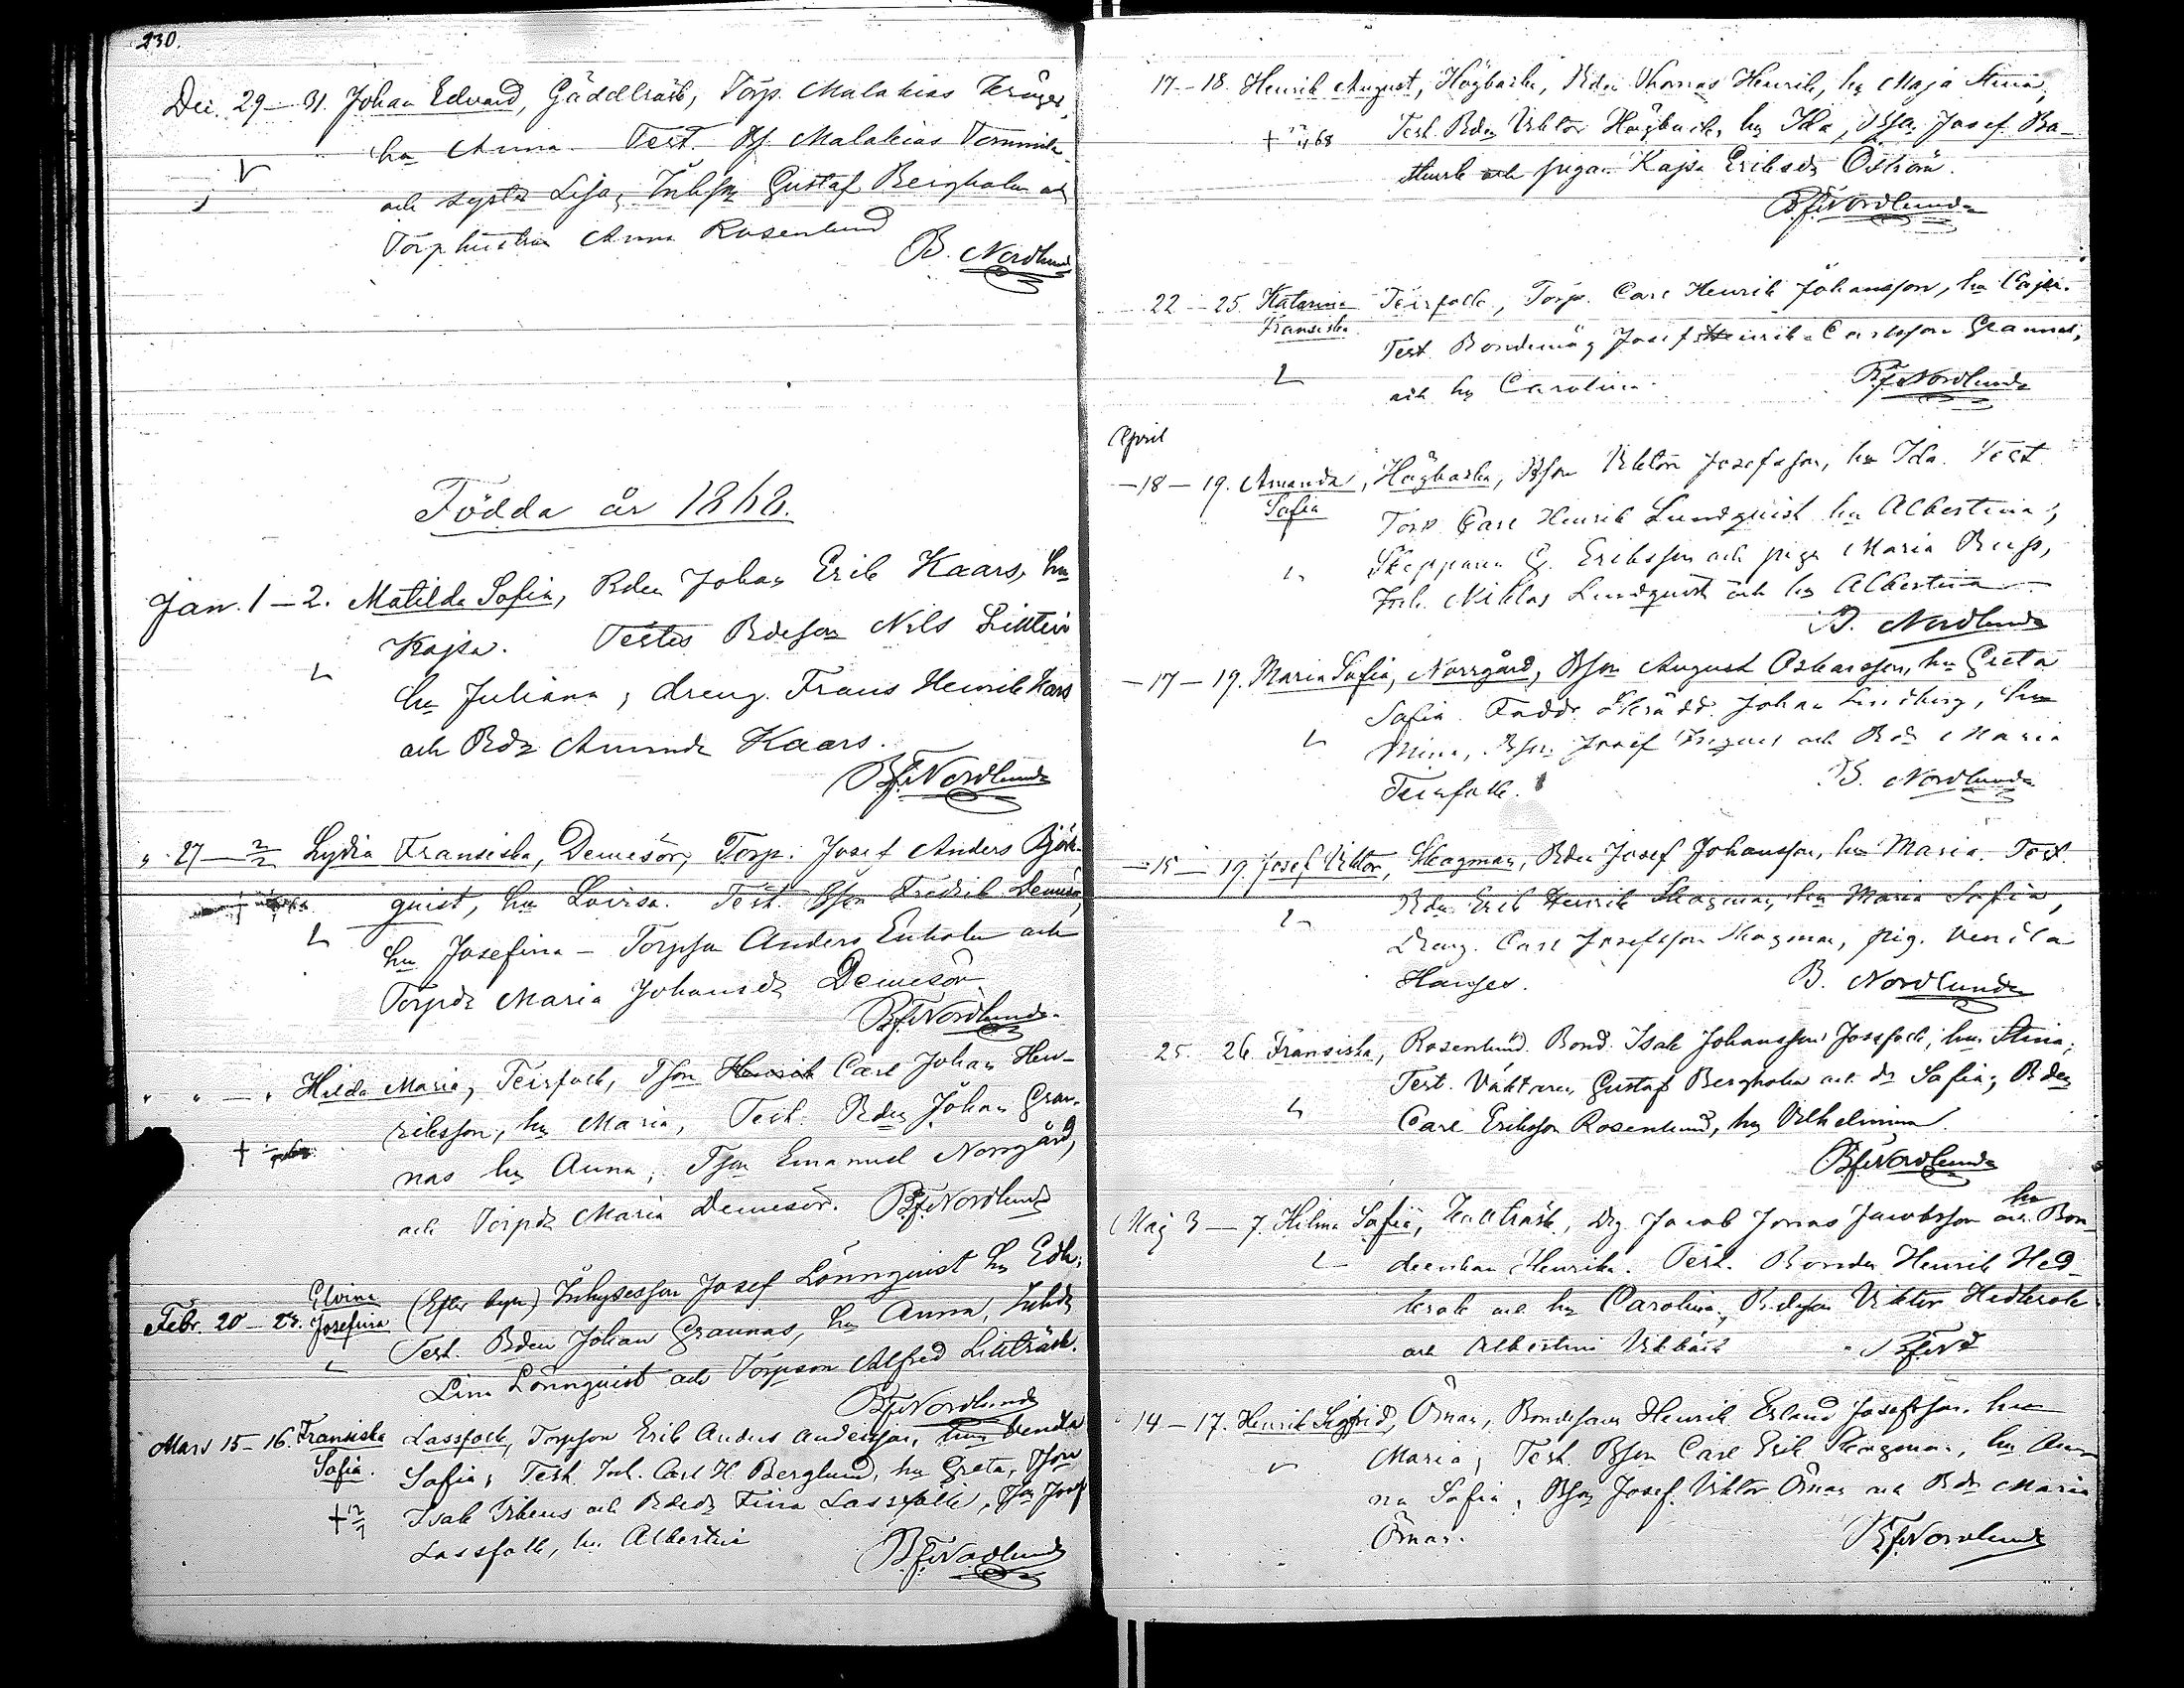 230.
Dec. 29–31. Johan Edvard, Gäddträsk, Torp. Malakias Krüger,
hu Anna. Test. Bf. Malakias
och Lisa, Inhsn Gustaf Bergholm och
Torphustru Anna Rosenlund
B. Nordlund
Födda år 1868.
Jan. 1–2. Matilda Sofia, Bden Johan Erik Kaars, hu
Kajsa. Testes Bdeson Nils Litten
hu Juliana, dreng. Frans Henrik Kars
och Bdr Amanda Kaars.
B.f.Nordlund
" 27–2/2 Lydia Fransiska, Demesör, Torp. Josef Anders Björk-
quist, hu Lovisa. Test. Bson Fredrik Demesör,
hu Josefina – Torpson Anders Enholm och
Torpdr Maria Johansdr Demesör
B.f.Nordlund
" " – " Hilda Maria, Teirfolk, Tson Henrik Carl Johan Hen-
riksson, hu Maria, Test. Bden Johan Gran-
nas hu Anna; Tson Emanuel Norrgård,
och Torpdr Maria Demesör. B.f.Nordlund
Febr. 20–23. Elvina Josefina (Efter byn) Inhysesson Josef Lönnquist hu Edla;
Test. Bden Johan Grannas, hu Anna, Inhdr
Lina Lönnquist och Torpson Alfred Lillträsk.
B.f.Nordlund
Mars 15–16. Fransiska Sofia. Lassfolk, Torpson Erik Anders Andersson, hu Vendla
Sofia; Test. Inh. Carl H. Berglund, hu Greta, Tson
Isak och Bdedr Fina Lassfolk, Tson Josef
+ 12/7
Lassfolk, hu Albertina
B.f.Nordlund
17–18. Henrik August, Högbacka, Bden Thomas Henrik, hu Maja Stina;
+ 68 Test. Bden Viktor Högback, hu Ida, Bson Josef Ba-
och pigan Kajsa Eriksdr Öström.
B.f.Nordlund
22–25. Katarina Fransiska Teirfolk, Torp. Carl Henrik Johansson, hu Cajsa.
Test. Bondemåg Josef Henrik Carlsson Grannas,
och hu Carolina.
B.f.Nordlund
April
–18–19. Amanda Sofia, Högbacka, Bson Viktor Josefsson, hu Ida. Test.
Torp. Carl Henrik Lundquist hu Albertina;
Skepparen G. Eriksson och piga Maria
Inh. Niklas Lundquist och hu Albertina
B. Nordlund
–17–19. Maria Sofia, Norrgård, Bson August Oskarsson, hu Greta
Sofia. Faddr. Skrädd. Johan Lindberg, hu
Mina, Bson Josef och Bdr Maria
Teirfolk.
B. Nordlund
–15–19. Josef Viktor, Skagman, Bden Josef Johansson, hu Maria. Test.
Bden Erik Henrik Skagman, hu Maria Sofia,
Dreng. Carl Josefsson Skagman, pig. Venila
Hanses.
B. Nordlund
25. 26. Fransiska, Rosenlund. Bond. Isak Johansson Jossfolk, hu Stina;
Test. Väktaren Gustaf Bergholm och dr Sofia; Bden
Carl Eriksson Rosenlund, hu Vilhelmina.
B.f.Nordlund
Maj 3–7. Hilma Sofia, Drg Jacob Jonas Jacobsson och hu Bon-
deenkan Henrika. Test. Bonden Henrik Hed-
krok och hu Carolina, Bdeson Viktor Hedkrok
och Albertina
B.f.Nd
14–17. Henrik Sigfrid, Örnas, Bondeson Henrik Erland Josefsson. hu
Maria; Test. Bson Carl Erik Skagman, hu An-
na Sofia, Bson Josef Viktor Örnas och Bdr Maria
Örnas.
B.f.Nordlund